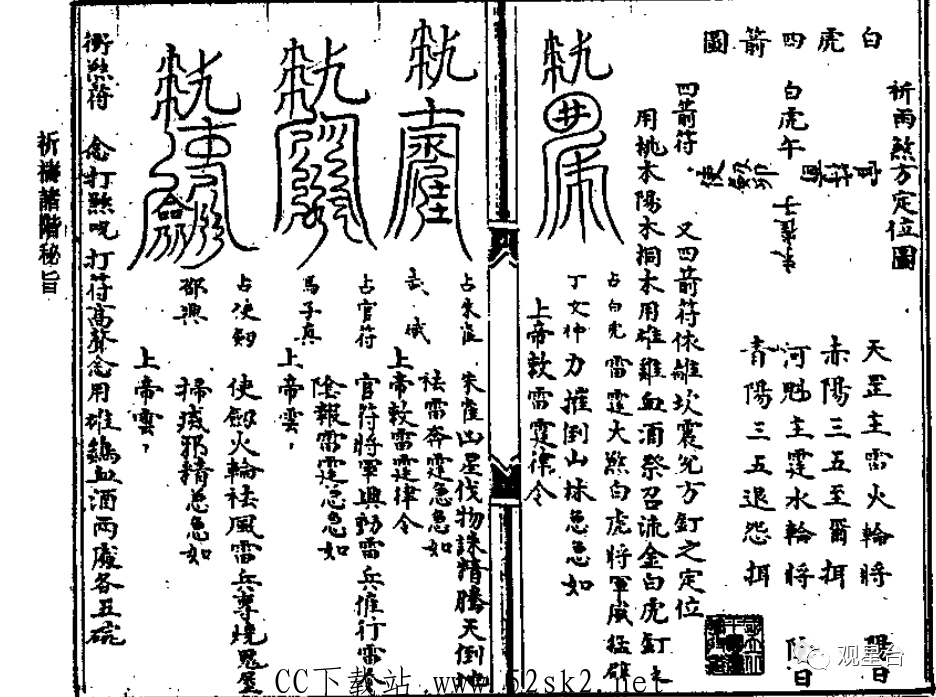 祈雨煞方定位圖
白虎四箭圖
天罡主雷火輪將 陽日
赤陽三五至爾揖
白虎午
河魁主霆水輪將 陰日
青陽三五退怨揖
四箭符 又四箭符依離坎震兌方釘之定位
用桃木陽木桐木用雄雞血酒祭召流金白虎釘
占白虎 雷霆大煞白虎將軍威猛
丁文仲 力摧倒山林急急如
上帝敕雷霆律令
占朱雀 朱雀凶星伐物誅精騰天倒地
祛雷奔霆急急如
上帝敕雷霆律令
占官符 官符將軍興動雷兵催行雷
馬子真 陰報雷霆急急如
上帝雲
占使劍 使劍火輪祛風雷兵尊燒鬼屋
邵興 掃滅邪精急急如
上帝雲
衝煞符 念打煞咒打符高聲念用雄鷄血酒兩處各五碗
祈禱諸階秘旨
观星台
CC下载站 www.52sk2.net